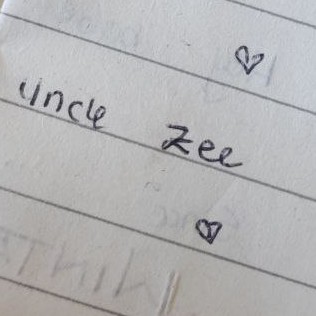 Uncle Zee